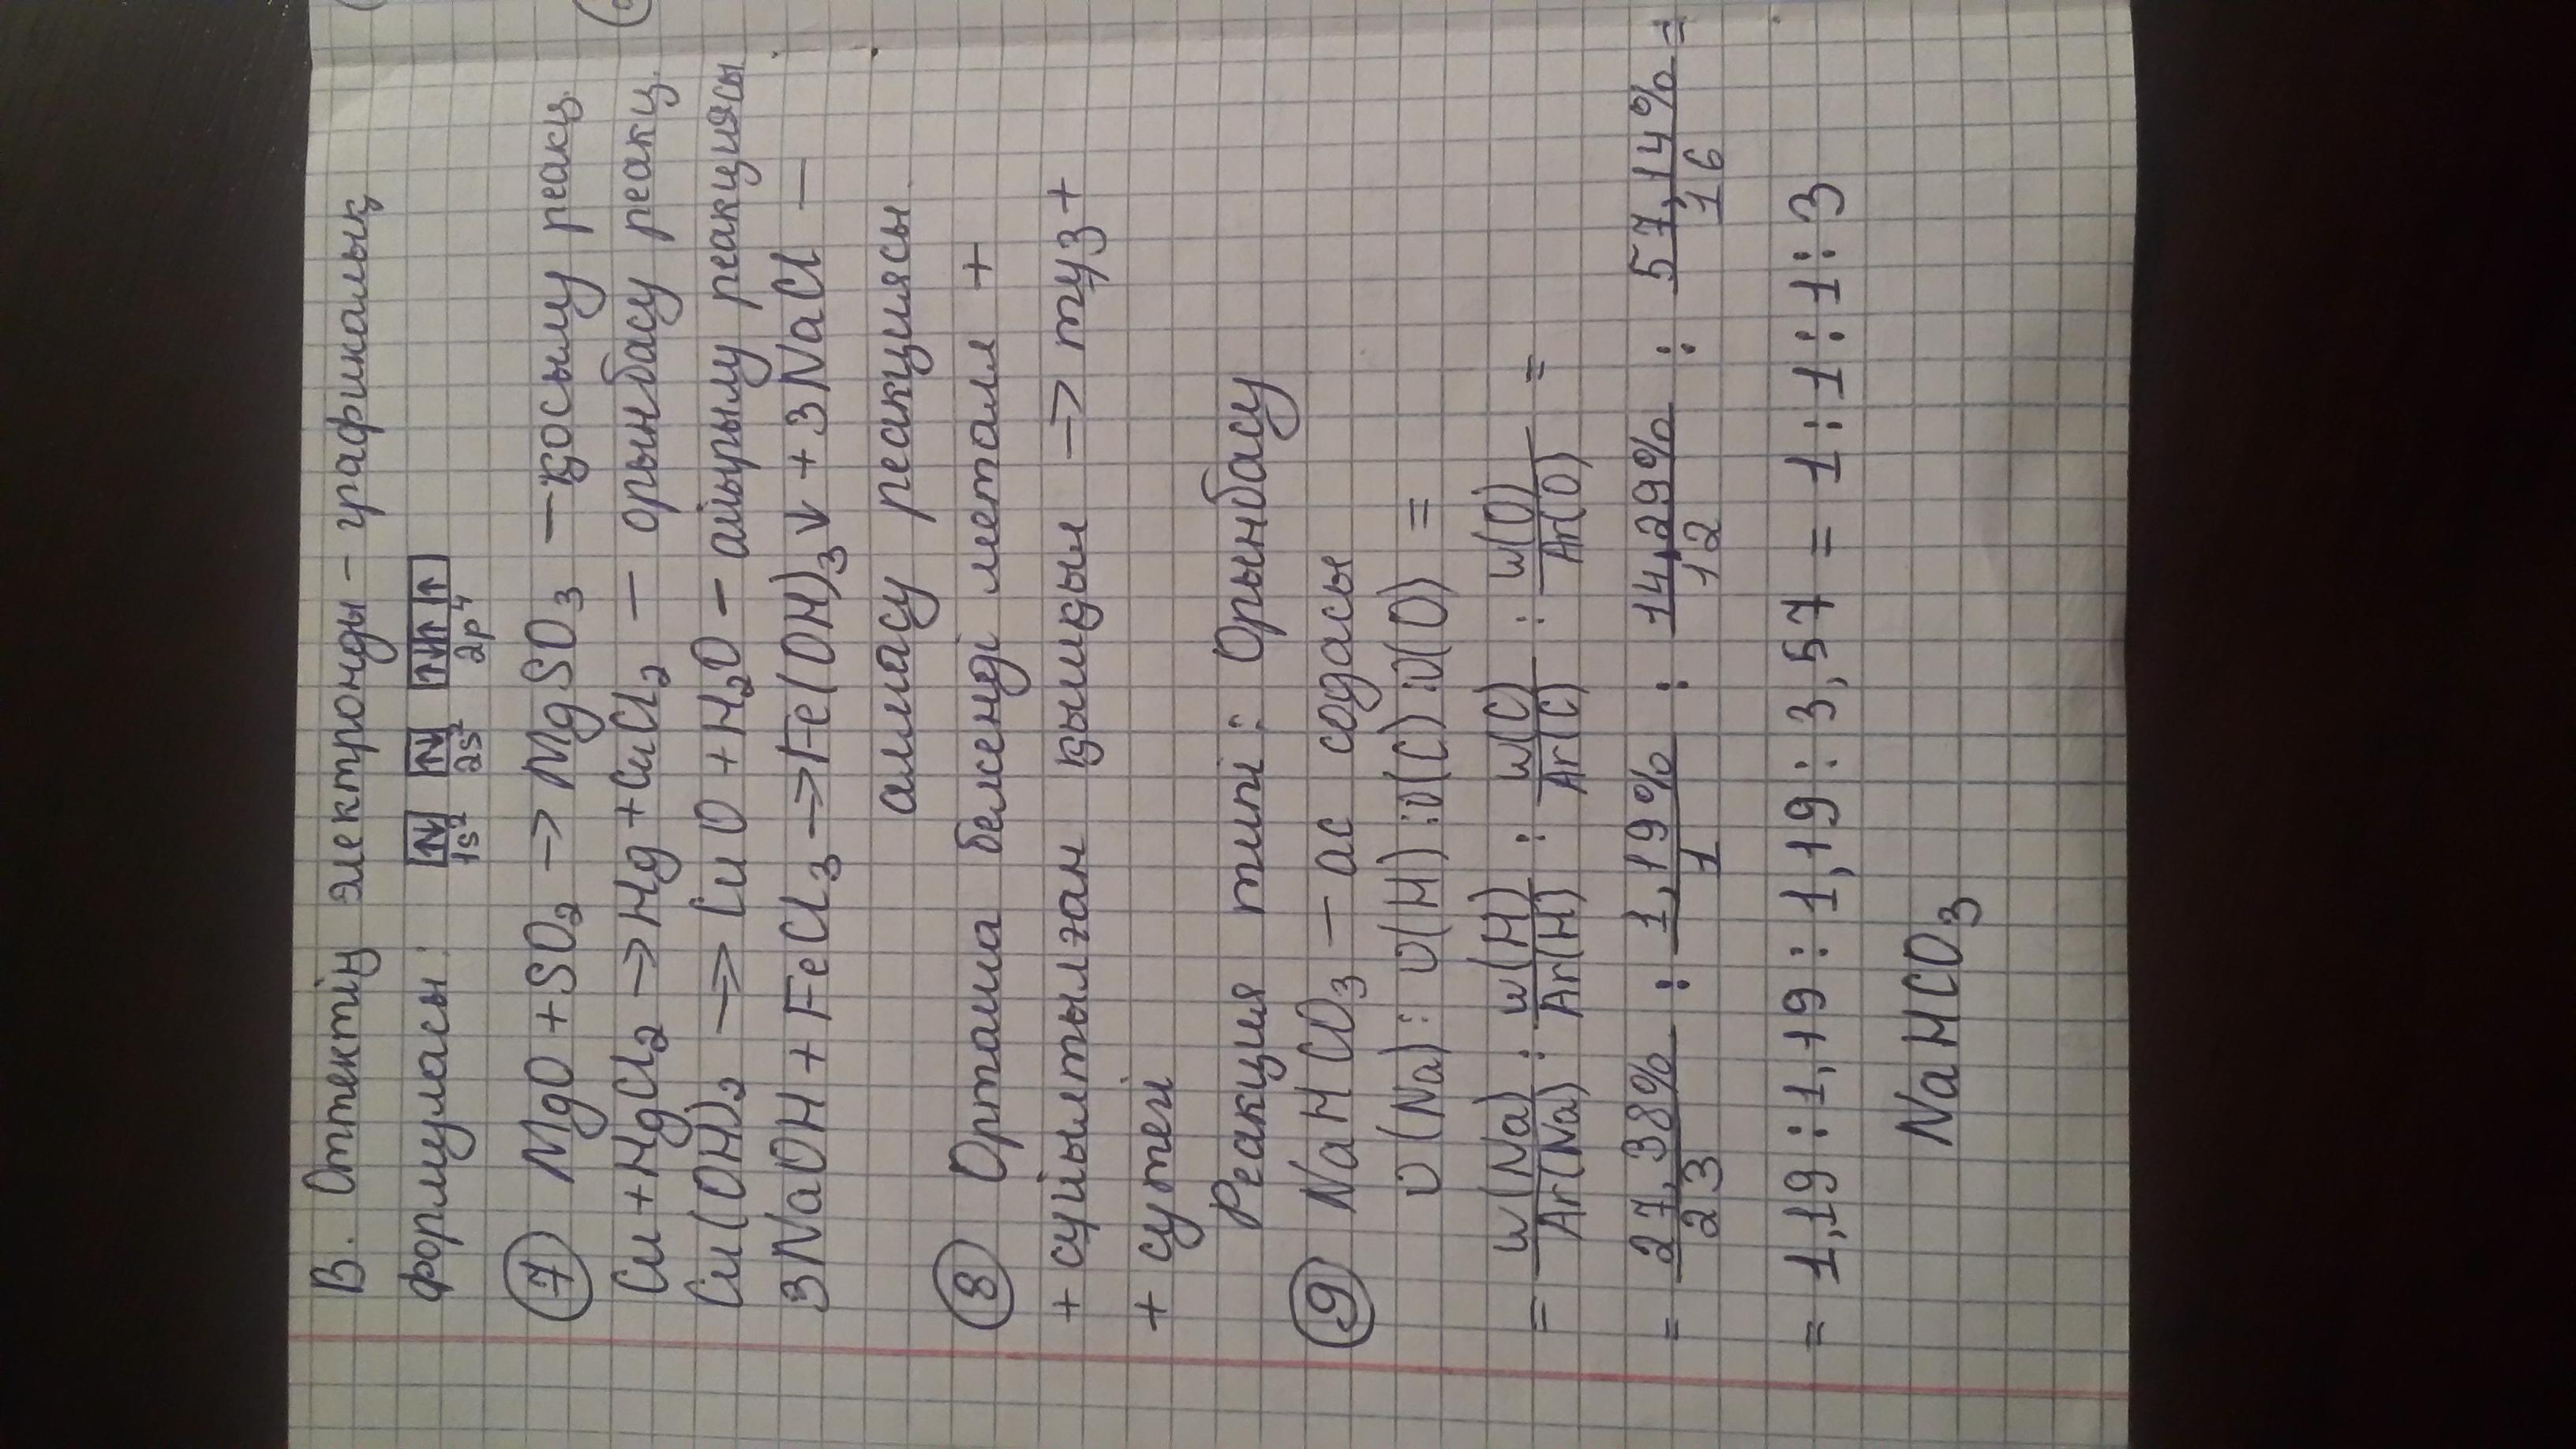 В. Оттектің электронды - графикалық
формуласы: ↑↓ ↑↓ ↑↓ ↑ ↑
1s² 2s² 2p⁴
7 MgO + SO₂ → MgSO₃ — қосылу реакц.
Cu + HgCl₂ → Hg + CuCl₂ — орынбасу реакц.
Cu(OH)₂ → CuO + H₂O - айырылу реакциясы
3NaOH + FeCl₃ → Fe(OH)₃↓ + 3NaCl —
алмасу реакциясы.
8 Орташа белсенді металл +
+ сұйылтылған қышқыл → тұз +
+ сутегі
Реакция типі: Орынбасу
9 NaHCO₃ — ас содасы
υ(Na) : υ(H) : υ(C) : υ(O) =
= w(Na)/Ar(Na) : w(H)/Ar(H) : w(C)/Ar(C) : w(O)/Ar(O) =
= 27,38%/23 : 1,19%/1 : 14,29%/12 : 57,14%/16 =
= 1,19 : 1,19 : 1,19 : 3,57 = 1 : 1 : 1 : 3
NaHCO₃